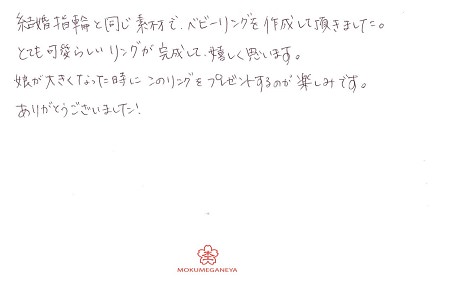 結婚指輪と同じ素材で、ベビーリングを作成して頂きました。
とても可愛らしいリングが完成して、嬉しく思います。
娘が大きくなった時にこのリングをプレゼントするのが楽しみです。
ありがとうございました!
MOKUMEGANEYA